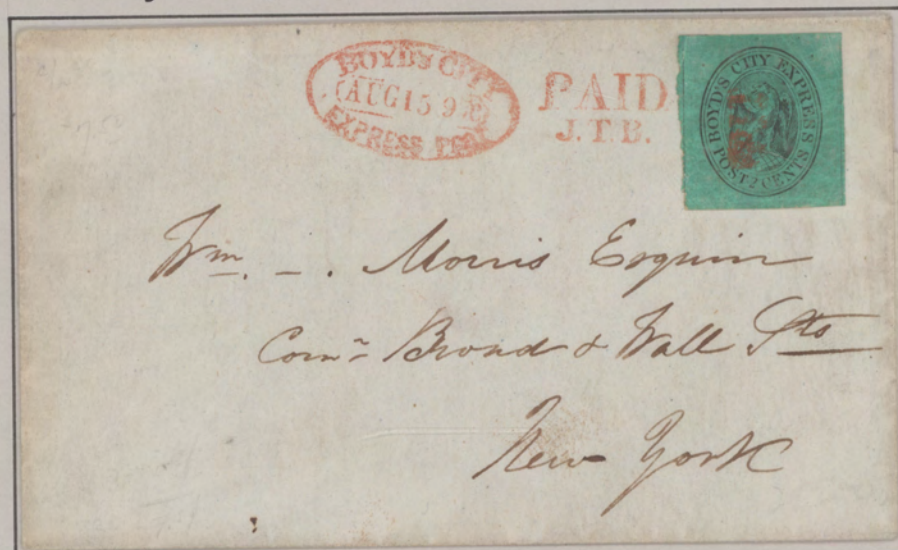 BOYD'S CITY
AUG 15 9
EXPRESS POST
PAID
J.T.B.
BOYD'S CITY EXPRESS
POST 2 CENTS
Wm. _ . Morris Esquire
Corn^r Broad & Wall Sts
New York